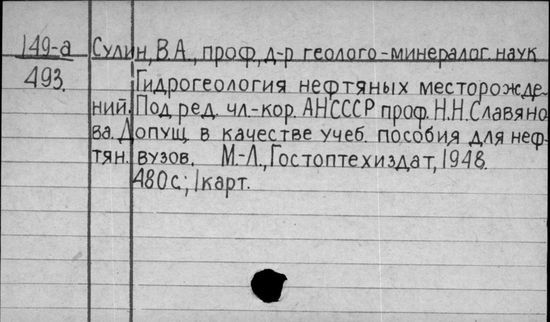 149-а Сулин, В.А., проф., д-р геолого-минералог. наук
493. Гидрогеология нефтяных месторожде-
ний. Под ред. чл.-кор. АН СССР проф. Н.Н. Славяно
ва. Допущ. в качестве учеб. пособия для неф-
тян. вузов. М.-Л., Гостоптехиздат, 1948.
480 с.; 1 карт.